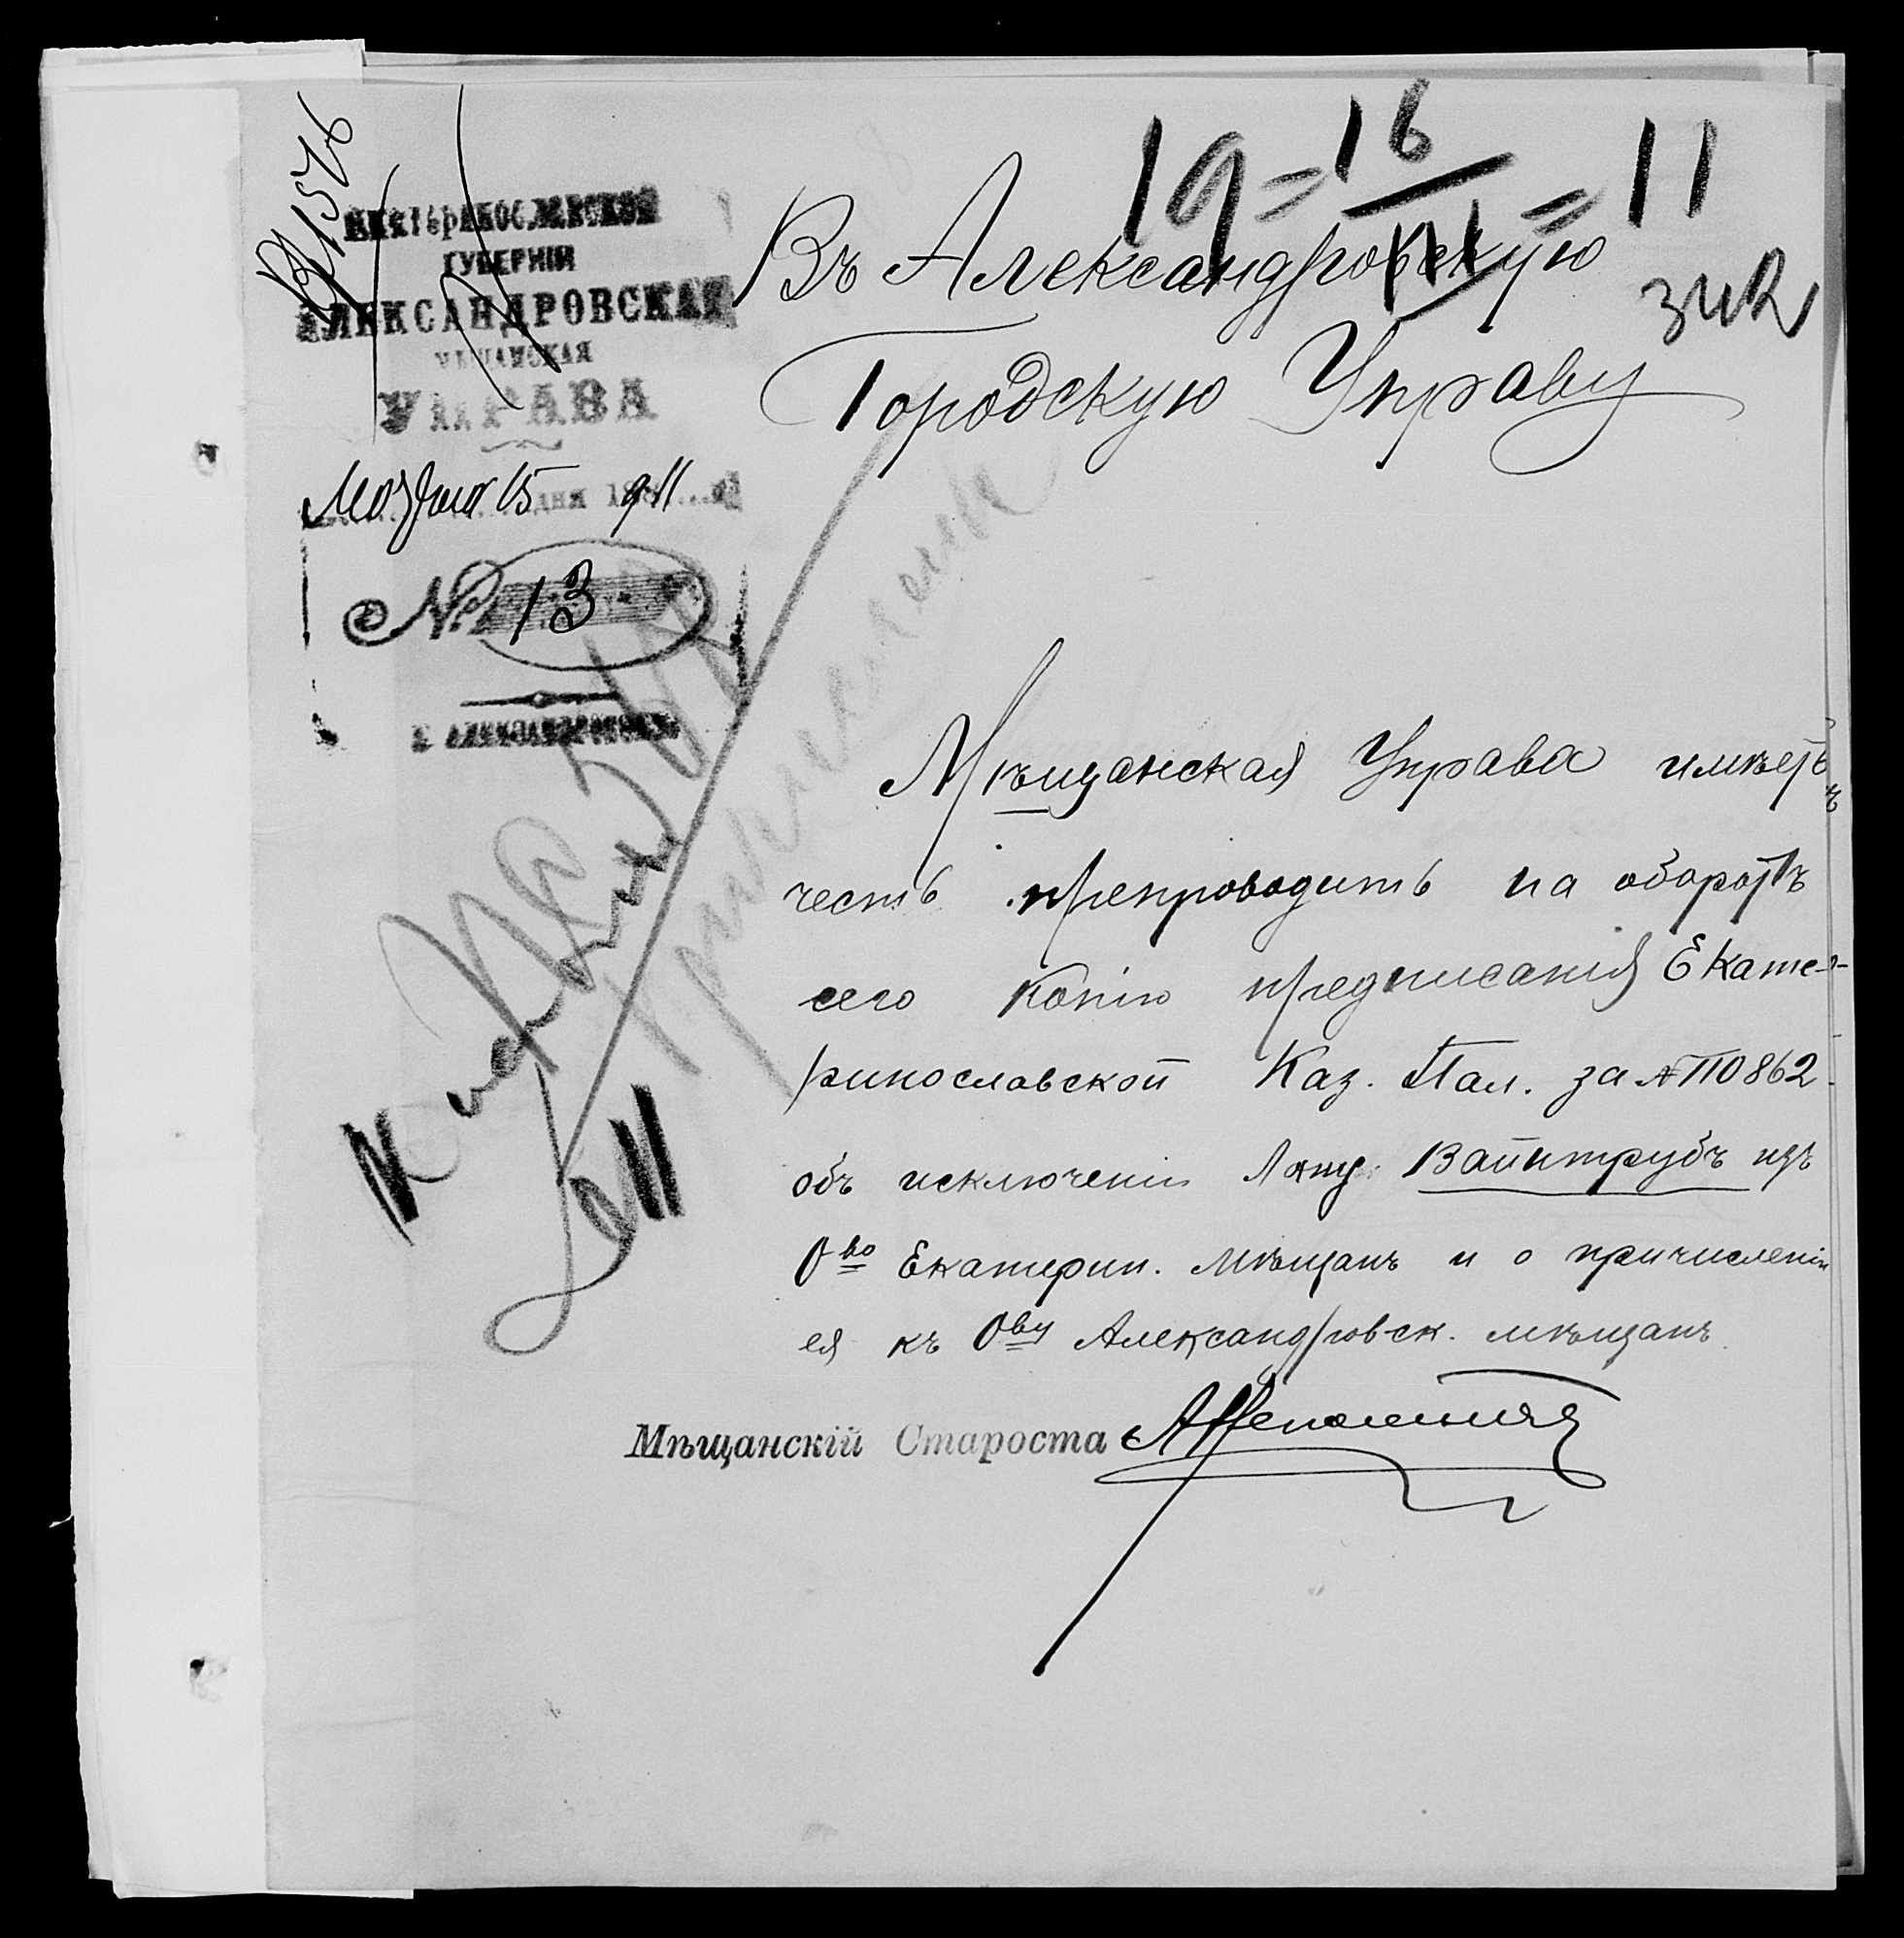 1576
ЕКАТЕРИНОСЛАВСКОЙ
ГУБЕРНІИ
АЛЕКСАНДРОВСКАЯ
МѢЩАНСКАЯ
УПРАВА
Марта 15 дня 911
№ 13
Г. АЛЕКСАНДРОВСКЪ
19=16/III=11
Въ Александровскую
Городскую Управу
Мѣщанская Управа имѣетъ
честь препроводить на оборотѣ
сего копію предписанія Екате-
ринославской Каз. Пал. за № 10862
объ исключеніи Вайнтрубъ изъ
О-во Екатерин. мѣщанъ и о причисленіи
ея къ О-ву Александровск. мѣщанъ.
Мѣщанскій Староста